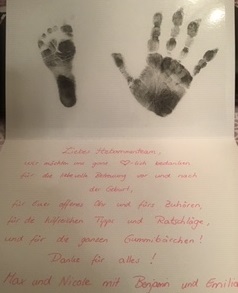 Liebes Hebammenteam,
wir möchten uns ganz ♡-lich bedanken
für die liebevolle Betreuung vor und nach
der Geburt,
für Euer offenes Ohr und fürs Zuhören,
für die hilfreichen Tipps und Ratschläge,
und für die ganzen Gummibärchen!
Danke für alles!
Max und Nicole mit Benjamin und Emilia